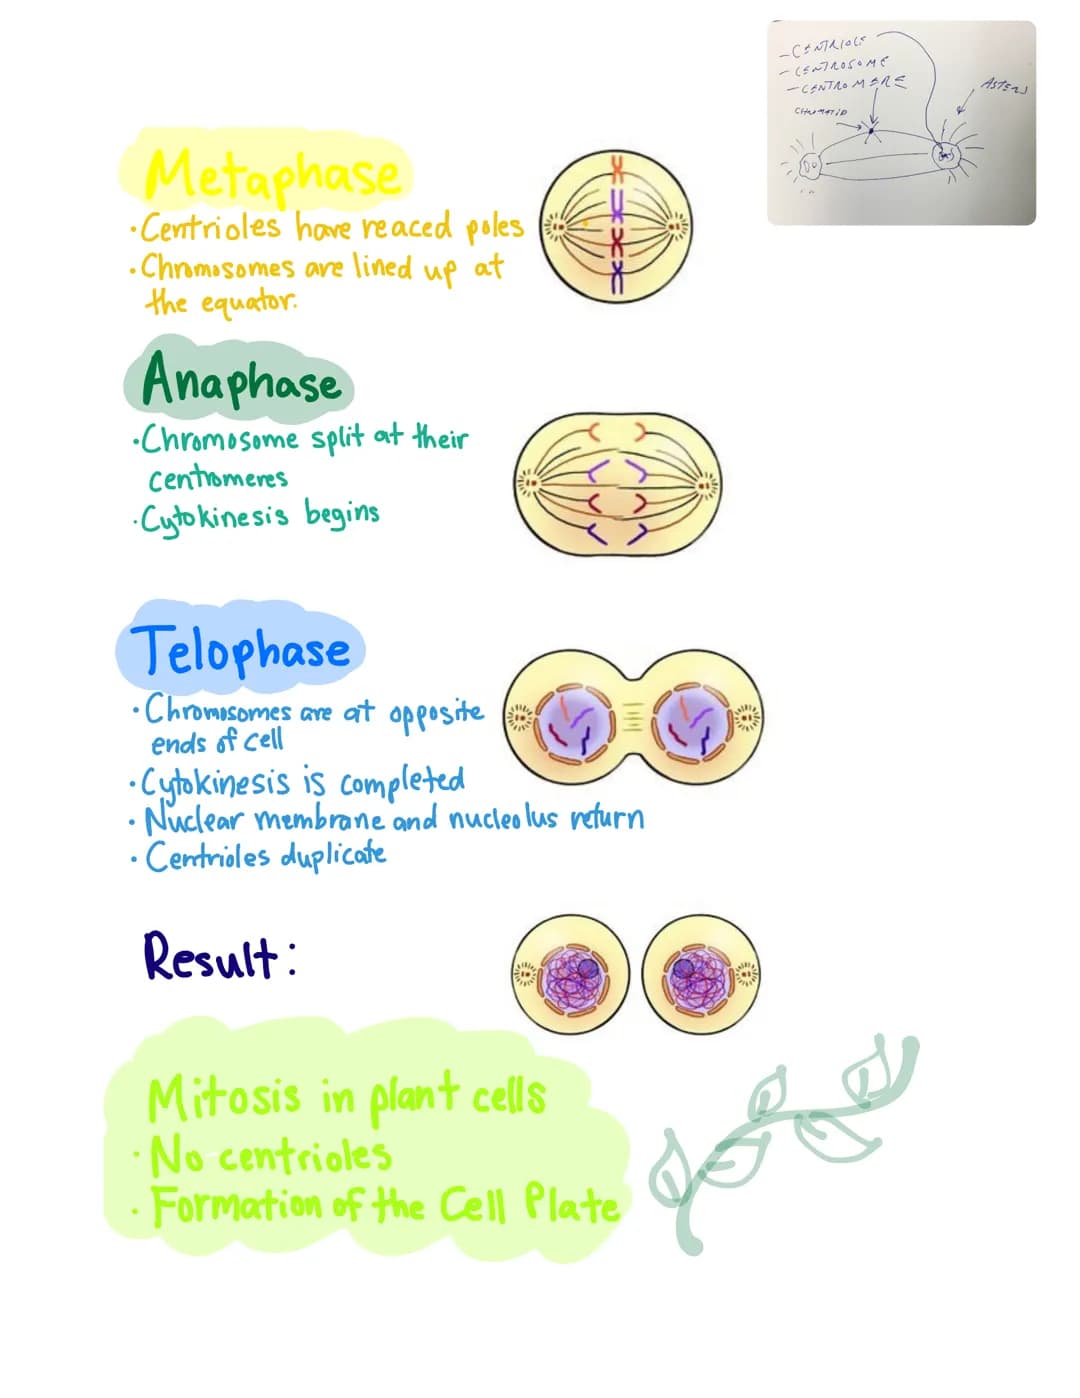 - CENTRIOLE
- CENTROSOME
- CENTROMERE
ASTERS
CHROMATID
Metaphase
• Centrioles have reaced poles
• Chromosomes are lined up at
the equator.
Anaphase
• Chromosome split at their
centromeres
• Cytokinesis begins
Telophase
• Chromosomes are at opposite
ends of cell
• Cytokinesis is completed
• Nuclear membrane and nucleolus return
• Centrioles duplicate
Result:
Mitosis in plant cells
• No centrioles
• Formation of the Cell Plate